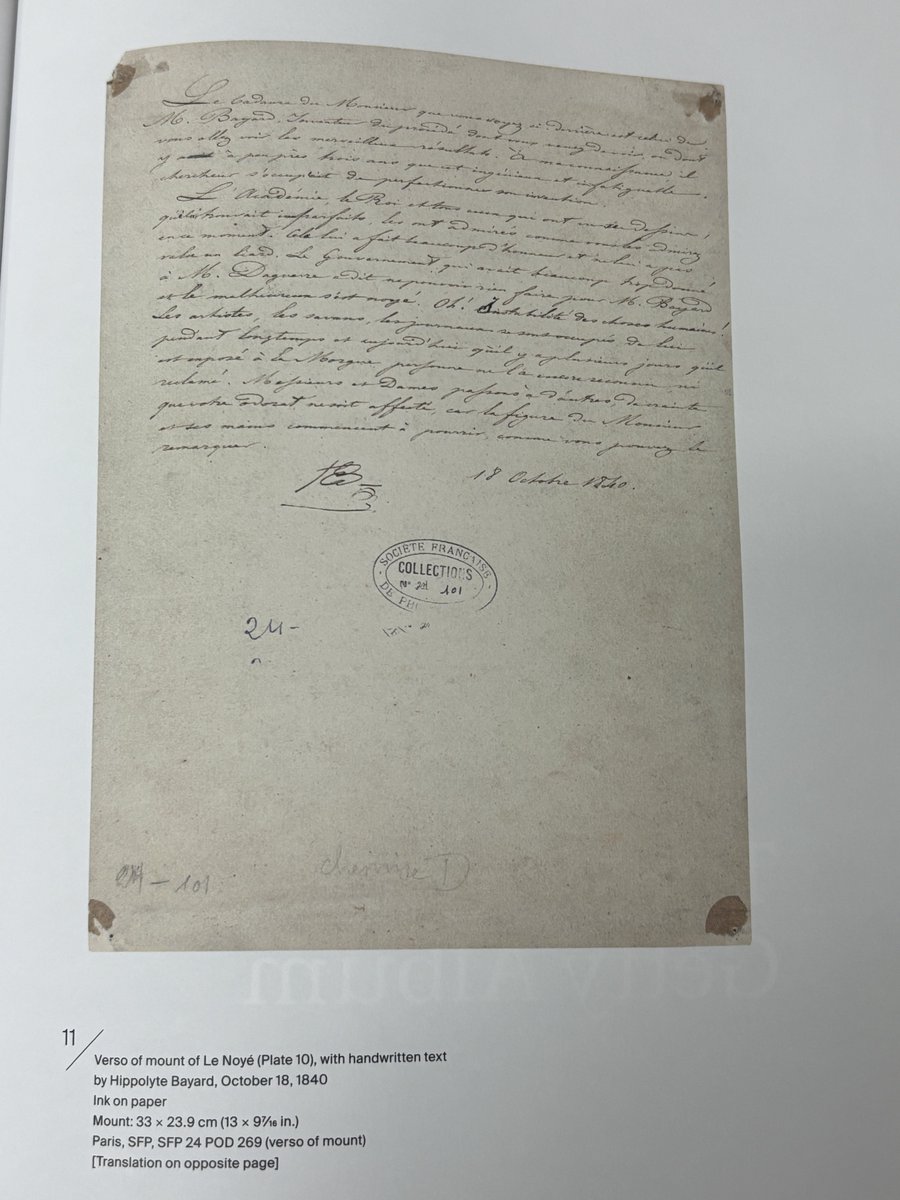 Le Cadavre du Monsieur que vous voyez ci derrière est celui de
M. Bayard, Inventeur du procédé dont vous venez de voir, ou dont
vous allez voir les merveilleux résultats. À ma connaissance, il
y a à peu près trois ans que cet ingénieux et infatigable
chercheur s'occupait de perfectionner son invention.
L'Académie, le Roi et tous ceux qui ont vu ses dessins,
qu'il trouvait imparfaits, les ont admirés comme vous les admirez
en ce moment. Cela lui a fait beaucoup d'honneur et ne lui a pas
valu un liard. Le Gouvernement qui avait beaucoup trop donné
à M. Daguerre a dit ne pouvoir rien faire pour M. Bayard
et le malheureux s'est noyé. Oh! Instabilité des choses humaines!
Les artistes, les savans, les journaux se sont occupés de lui
pendant longtemps et aujourd'hui qu'il y a plusieurs jours qu'il
est exposé à la Morgue personne ne l'a encore reconnu, ni
réclamé. Messieurs et Dames, passons à d'autres, de crainte
que votre odorat ne soit affecté, car la figure du Monsieur
et ses mains commencent à pourrir, comme vous pouvez le
remarquer.
HB
18 Octobre 1840.
SOCIÉTÉ FRANÇAISE
COLLECTIONS
N° 24 101
DE
24-
24 - 101
chemise D
Getty Album
11
Verso of mount of Le Noyé (Plate 10), with handwritten text
by Hippolyte Bayard, October 18, 1840
Ink on paper
Mount: 33 × 23.9 cm (13 × 9 7/16 in.)
Paris, SFP, SFP 24 POD 269 (verso of mount)
[Translation on opposite page]